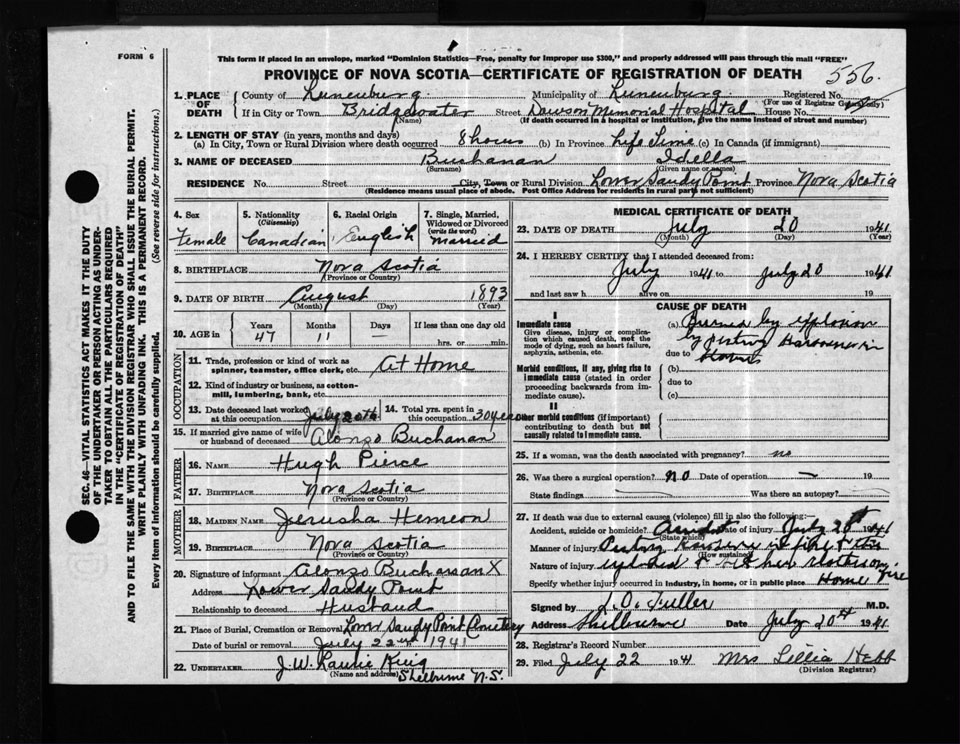 FORM 6
This form if placed in an envelope, marked "Dominion Statistics—Free, penalty for improper use $300," and properly addressed will pass through the mail "FREE"
PROVINCE OF NOVA SCOTIA—CERTIFICATE OF REGISTRATION OF DEATH
556.
1. PLACE OF DEATH
County of Lunenburg Municipality of Lunenburg Registered No.
(For use of Registrar General only)
If in City or Town Bridgewater Street Dawson Memorial Hospital House No.
(Name) (If death occurred in a hospital or institution, give the name instead of street and number)
2. LENGTH OF STAY (in years, months and days)
(a) In City, Town or Rural Division where death occurred 8 hours (b) In Province Life Time (c) In Canada (if immigrant)
3. NAME OF DECEASED Buchanan Idella
(Surname) (Given name or names)
RESIDENCE No. Street City, Town or Rural Division Lower Sandy Point Province Nova Scotia
(Residence means usual place of abode. Post Office Address for residents in rural parts not sufficient)
4. Sex Female
5. Nationality (Citizenship) Canadian
6. Racial Origin English
7. Single, Married, Widowed or Divorced (write the word) married
8. BIRTHPLACE Nova Scotia
(Province or Country)
9. DATE OF BIRTH August 1893
(Month) (Day) (Year)
10. AGE in Years 47 Months 11 Days — If less than one day old
hrs. or min.
OCCUPATION
11. Trade, profession or kind of work as spinner, teamster, office clerk, etc. At Home
12. Kind of industry or business, as cotton-mill, lumbering, bank, etc.
13. Date deceased last worked at this occupation July 20th
14. Total yrs. spent in this occupation 30 years
15. If married give name of wife or husband of deceased Alonzo Buchanan
FATHER
16. NAME Hugh Pierce
17. BIRTHPLACE Nova Scotia
(Province or Country)
MOTHER
18. MAIDEN NAME Jerusha Hemeon
19. BIRTHPLACE Nova Scotia
(Province or Country)
20. Signature of informant Alonzo Buchanan X
Address Lower Sandy Point
Relationship to deceased Husband
21. Place of Burial, Cremation or Removal Lower Sandy Point Cemetery
Date of burial or removal July 22nd 1941
22. UNDERTAKER J.W. Laurie King
(Name and address) Shelburne N.S.
MEDICAL CERTIFICATE OF DEATH
23. DATE OF DEATH July 20 1941
(Month) (Day) (Year)
24. I HEREBY CERTIFY that I attended deceased from:
July 1941 to July 20 1941
and last saw h alive on 19
CAUSE OF DEATH
I
Immediate cause
Give disease, injury or complication which caused death, not the mode of dying, such as heart failure, asphyxia, asthenia, etc.
(a) Burned by explosion
by
due to
Morbid conditions, if any, giving rise to immediate cause (stated in order proceeding backwards from immediate cause).
(b)
due to
(c)
II
Other morbid conditions (if important) contributing to death but not causally related to immediate cause.
25. If a woman, was the death associated with pregnancy? no
26. Was there a surgical operation? no Date of operation 19
State findings Was there an autopsy?
27. If death was due to external causes (violence) fill in also the following:
Accident, suicide or homicide? Accident Date of injury July 20th 1941
(State which)
Manner of injury
(How sustained)
Nature of injury
Specify whether injury occurred in industry, in home, or in public place Home
Signed by L.O. Fuller M.D.
Address Shelburne Date July 20th 1941
28. Registrar's Record Number
29. Filed July 22 1941 Mrs Lillia Hebb
(Division Registrar)
SEC. 46—VITAL STATISTICS ACT MAKES IT THE DUTY
OF THE UNDERTAKER OR PERSON ACTING AS UNDER-
TAKER TO OBTAIN ALL THE PARTICULARS REQUIRED
IN THE "CERTIFICATE OF REGISTRATION OF DEATH"
AND TO FILE THE SAME WITH THE DIVISION REGISTRAR WHO SHALL ISSUE THE BURIAL PERMIT.
WRITE PLAINLY WITH UNFADING INK. THIS IS A PERMANENT RECORD.
Every item of information should be carefully supplied. (See reverse side for instructions.)